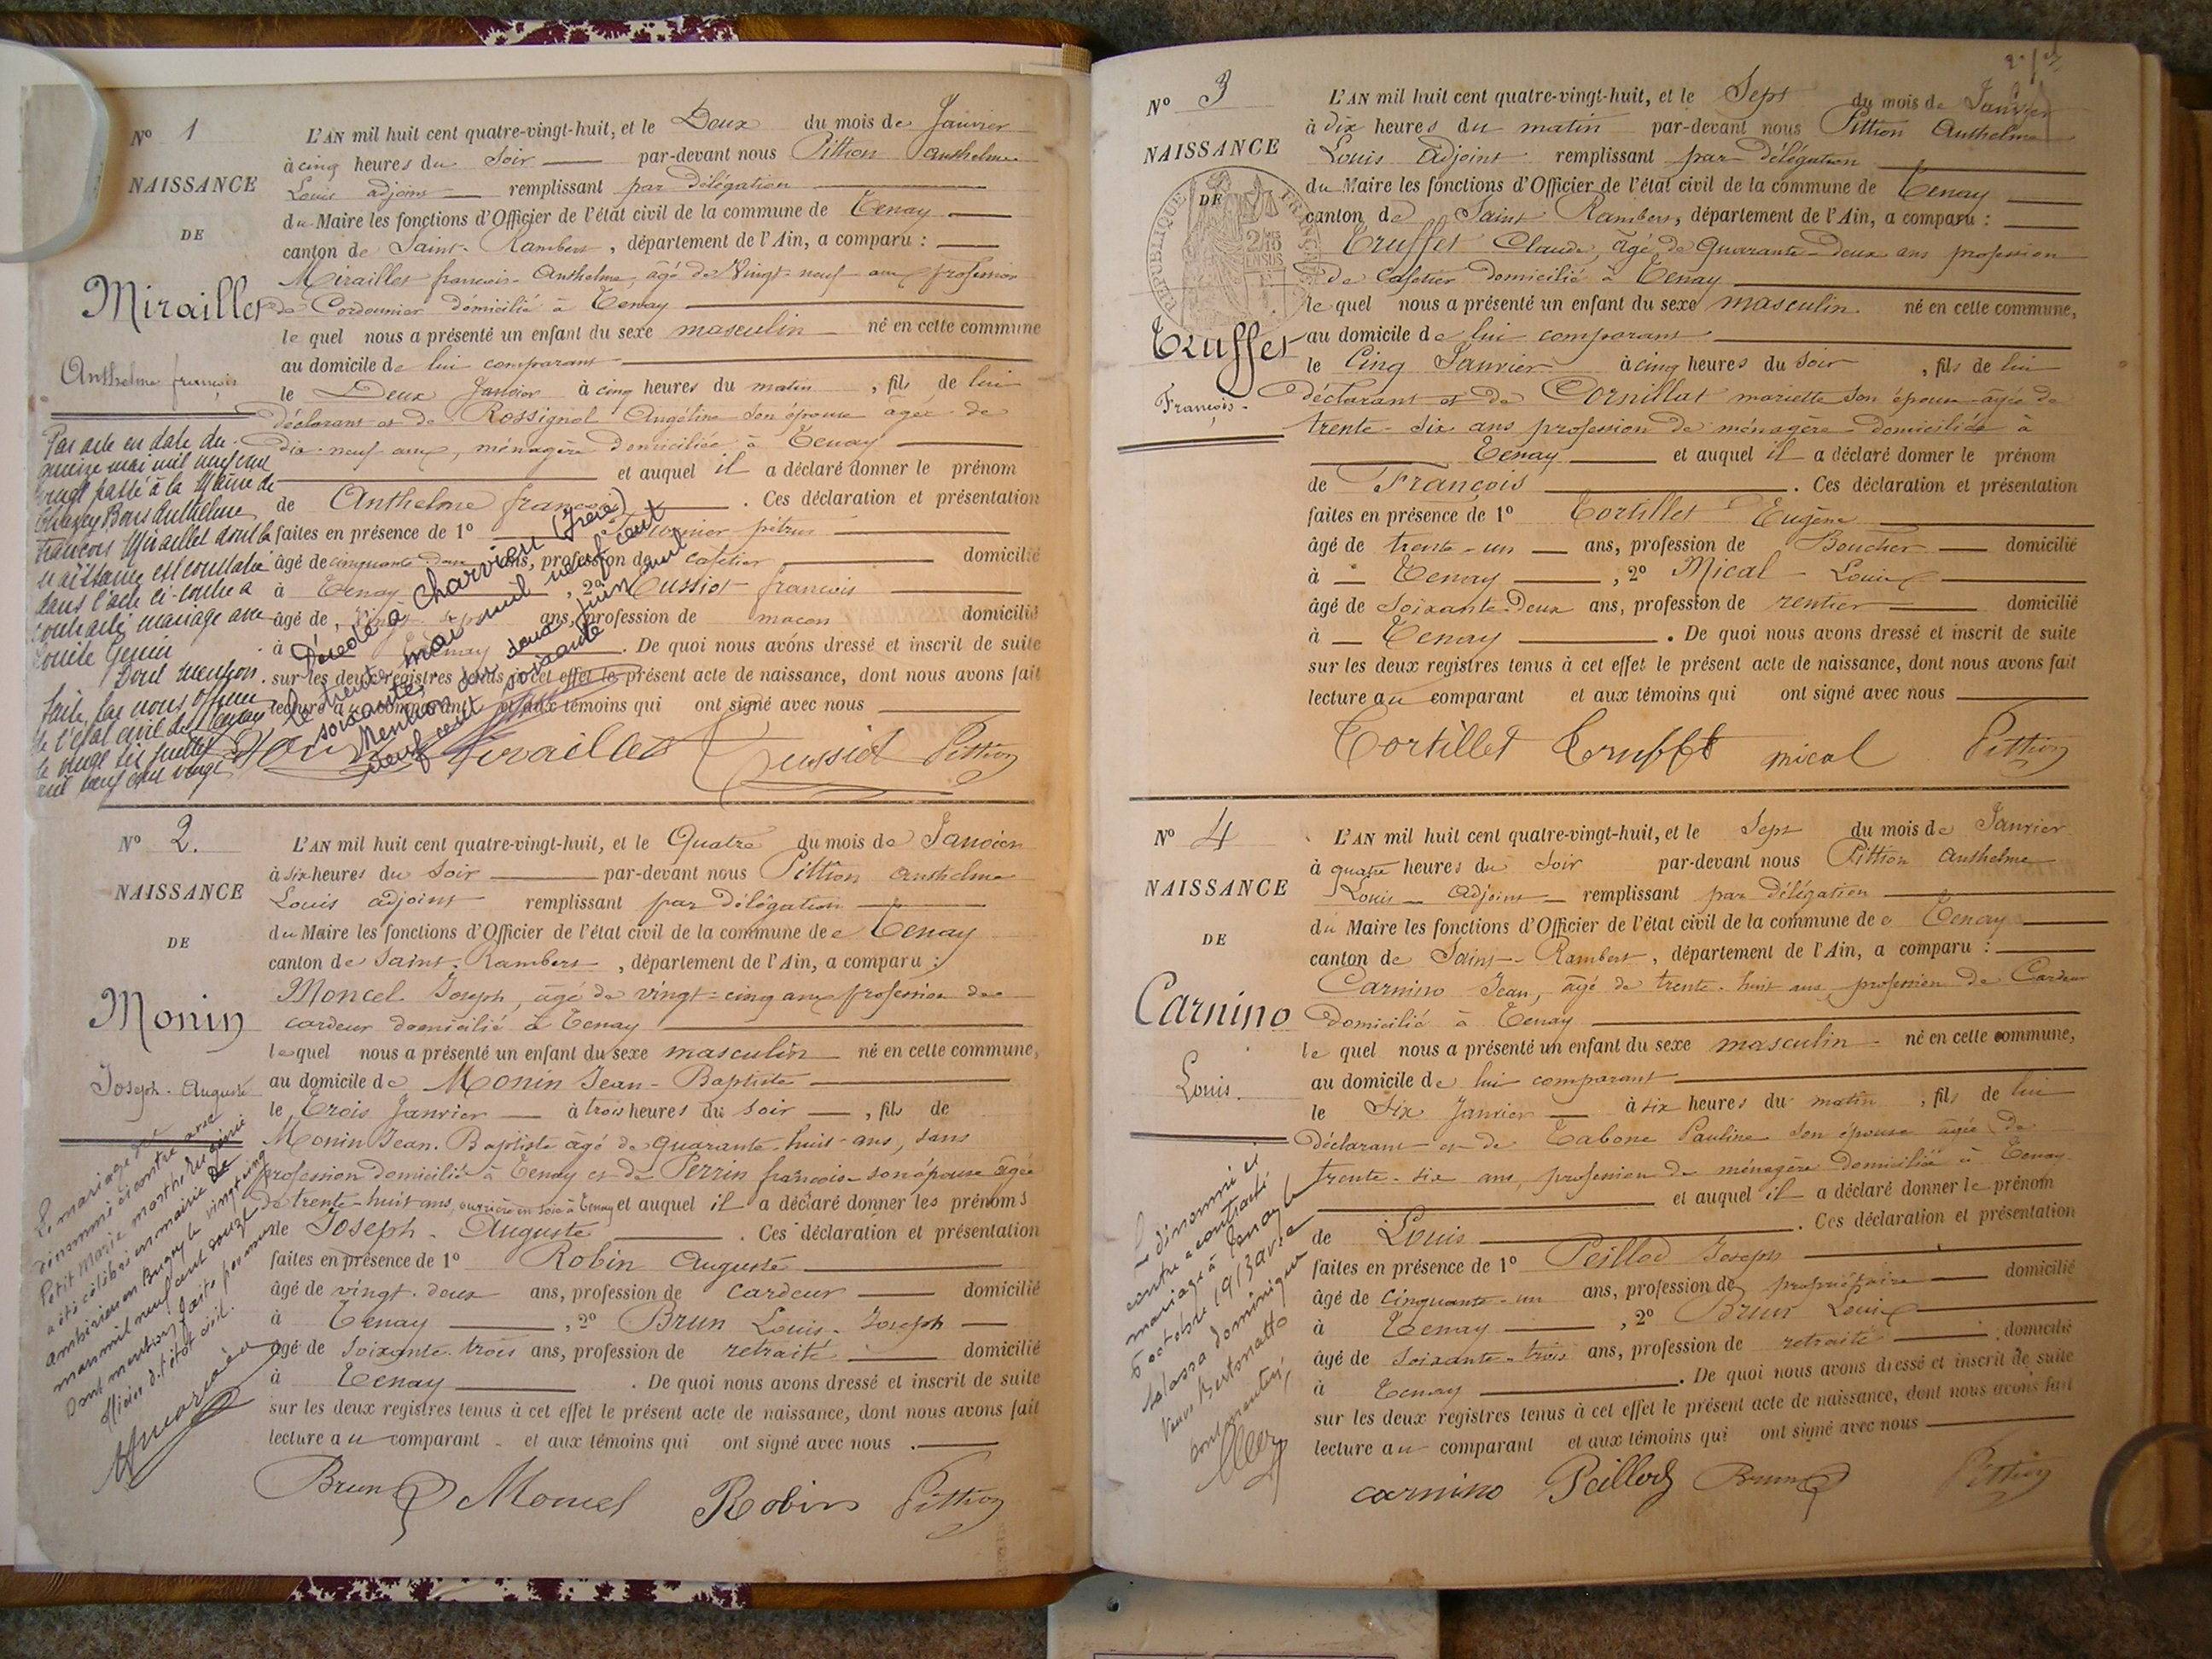 N° 1
NAISSANCE
DE
Miraillet
Anthelme françois
L'AN mil huit cent quatre-vingt-huit, et le Deux du mois de Janvier
à cinq heures du Soir par-devant nous Pittion Anthelme
Louis adjoint remplissant par délégation
du Maire les fonctions d'Officier de l'état civil de la commune de Tenay
canton de Saint-Rambert, département de l'Ain, a comparu :
Miraillet françois-Anthelme, âgé de Vingt-neuf ans profession
de Cordonnier domicilié à Tenay
le quel nous a présenté un enfant du sexe masculin né en cette commune
au domicile de lui comparant
le Deux Janvier à cinq heures du matin, fils de lui
déclarant et de Rossignol Angéline son épouse âgée de
dix-neuf ans, ménagère domiciliée à Tenay
et auquel il a déclaré donner le prénom
de Anthelme françois. Ces déclaration et présentation
faites en présence de 1° petrus
âgé de cinquante ans, profession de cafetier domicilié
à Tenay, 2° Cussiot françois
âgé de ans, profession de maçon domicilié
à Tenay. De quoi nous avons dressé et inscrit de suite
sur les deux registres tenus à cet effet le présent acte de naissance, dont nous avons fait
lecture au comparant et aux témoins qui ont signé avec nous
Miraillet Cussiot Pittion
Par acte en date du
quinze mai mil neuf cent
vingt passé à la Mairie de
Chazey Bons Anthelme
François Miraillet dont la
naissance est constatée
dans l'acte ci-contre a
contracté mariage avec
Louise Genin
Dont mention
faite par nous Officier
de l'état civil de Tenay
le onze juillet
mil neuf cent vingt
Décédé à Charvieu (Isère)
le trente mai mil neuf cent
soixante
Mention du deux juin mil
neuf cent soixante
N° 2.
NAISSANCE
DE
Monin
Joseph-Auguste
L'AN mil huit cent quatre-vingt-huit, et le Quatre du mois de Janvier
à six heures du Soir par-devant nous Pittion Anthelme
Louis adjoint remplissant par délégation
du Maire les fonctions d'Officier de l'état civil de la commune de Tenay
canton de Saint-Rambert, département de l'Ain, a comparu :
Moncel Joseph, âgé de vingt-cinq ans profession de
cardeur domicilié à Tenay
lequel nous a présenté un enfant du sexe masculin né en cette commune,
au domicile de Monin Jean-Baptiste
le Trois Janvier à trois heures du soir, fils de
Monin Jean-Baptiste âgé de quarante-huit-ans, sans
profession domicilié à Tenay et de Perrin françoise son épouse âgée
de trente-huit ans, ouvrière en soie à Tenay et auquel il a déclaré donner les prénoms
de Joseph-Auguste. Ces déclaration et présentation
faites en présence de 1° Robin Auguste
âgé de vingt-deux ans, profession de cardeur domicilié
à Tenay, 2° Brun Louis-Joseph
âgé de soixante-trois ans, profession de retraité domicilié
à Tenay. De quoi nous avons dressé et inscrit de suite
sur les deux registres tenus à cet effet le présent acte de naissance, dont nous avons fait
lecture au comparant et aux témoins qui ont signé avec nous.
Brun Moncel Robin Pittion
Le mariage du
dénommé ci contre avec
Petit Marie Marthe Eugénie
a été célébré en mairie de
Ambérieu en Bugey le vingt cinq
mars mil neuf cent douze
Dont mention faite par nous
Officier d'état civil.
N° 3
NAISSANCE
DE
RÉPUBLIQUE FRANÇAISE
Truffet
François-
L'AN mil huit cent quatre-vingt-huit, et le Sept du mois de Janvier
à dix heures du matin par-devant nous Pittion Anthelme
Louis Adjoint remplissant par délégation
du Maire les fonctions d'Officier de l'état civil de la commune de Tenay
canton de Saint Rambert, département de l'Ain, a comparu :
Truffet Claude, âgé de Quarante-deux ans profession
de Cafetier domicilié à Tenay
le quel nous a présenté un enfant du sexe masculin né en cette commune,
au domicile de lui comparant
le Cinq Janvier à cinq heures du soir, fils de lui
déclarant et de Cornillat mariette son épouse âgée de
trente-six ans profession de ménagère domiciliée à
Tenay et auquel il a déclaré donner le prénom
de François. Ces déclaration et présentation
faites en présence de 1° Tortillet Eugène
âgé de trente-un ans, profession de Boucher domicilié
à Tenay, 2° Mical Louis
âgé de Soixante-Deux ans, profession de rentier domicilié
à Tenay. De quoi nous avons dressé et inscrit de suite
sur les deux registres tenus à cet effet le présent acte de naissance, dont nous avons fait
lecture au comparant et aux témoins qui ont signé avec nous
Tortillet Truffet mical Pittion
N° 4
NAISSANCE
DE
Carnino
Louis.
L'AN mil huit cent quatre-vingt-huit, et le Sept du mois de Janvier
à quatre heures du Soir par-devant nous Pittion Anthelme
Louis Adjoint remplissant par délégation
du Maire les fonctions d'Officier de l'état civil de la commune de Tenay
canton de Saint-Rambert, département de l'Ain, a comparu :
Carnino Jean, âgé de trente-huit ans profession de Cardeur
Domicilié à Tenay
le quel nous a présenté un enfant du sexe masculin né en cette commune,
au domicile de lui comparant
le Six Janvier à six heures du matin, fils de lui
déclarant et de Tabone Pauline son épouse âgée de
trente-six ans, profession de ménagère domiciliée à Tenay
et auquel il a déclaré donner le prénom
de Louis. Ces déclaration et présentation
faites en présence de 1° Peillod Joseph
âgé de Cinquante-un ans, profession de propriétaire domicilié
à Tenay, 2° Brun Louis
âgé de soixante-trois ans, profession de retraité domicilié
à Tenay. De quoi nous avons dressé et inscrit de suite
sur les deux registres tenus à cet effet le présent acte de naissance, dont nous avons fait
lecture au comparant et aux témoins qui ont signé avec nous
carnino Peillod Brun Pittion
Le dénommé ci
contre a contracté
mariage à Tenay le
octobre 1913 avec
Salassa Dominique
Veuve Bertonatto
Dont mention,